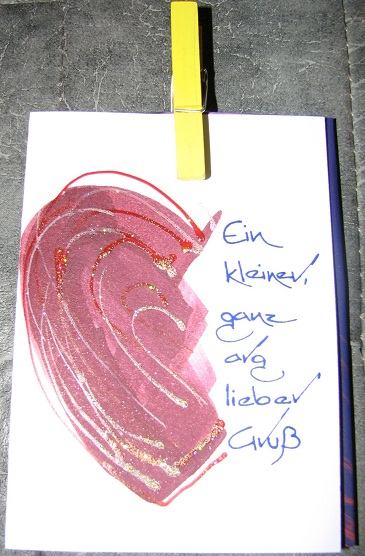 Ein
kleiner,
ganz
arg
lieber
Gruß